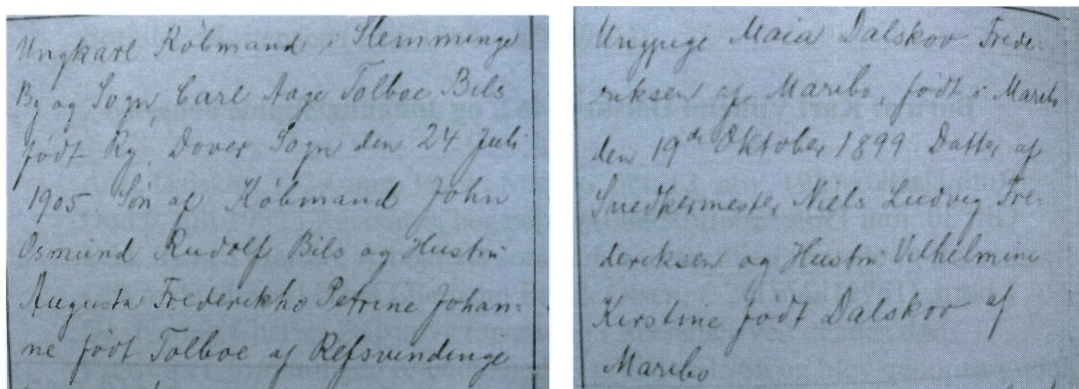 Ungkarl Købmand i Stemminge
By og Sogn, Carl Aage Tolboe Bils
født Ry, Dover Sogn den 24 Juli
1905. Søn af Købmand John
Osmund Rudolf Bils og Hustru
Augusta Frederikke Petrine Johan-
ne født Tolboe af Refsvindinge
Ungpige Maia Dalskov Frede-
riksen af Maribo, født i Maribo
den 19de Oktober 1899. Datter af
Snedkermester Niels Ludvig Fre-
deriksen og Hustru Vilhelmine
Kirstine født Dalskov af
Maribo